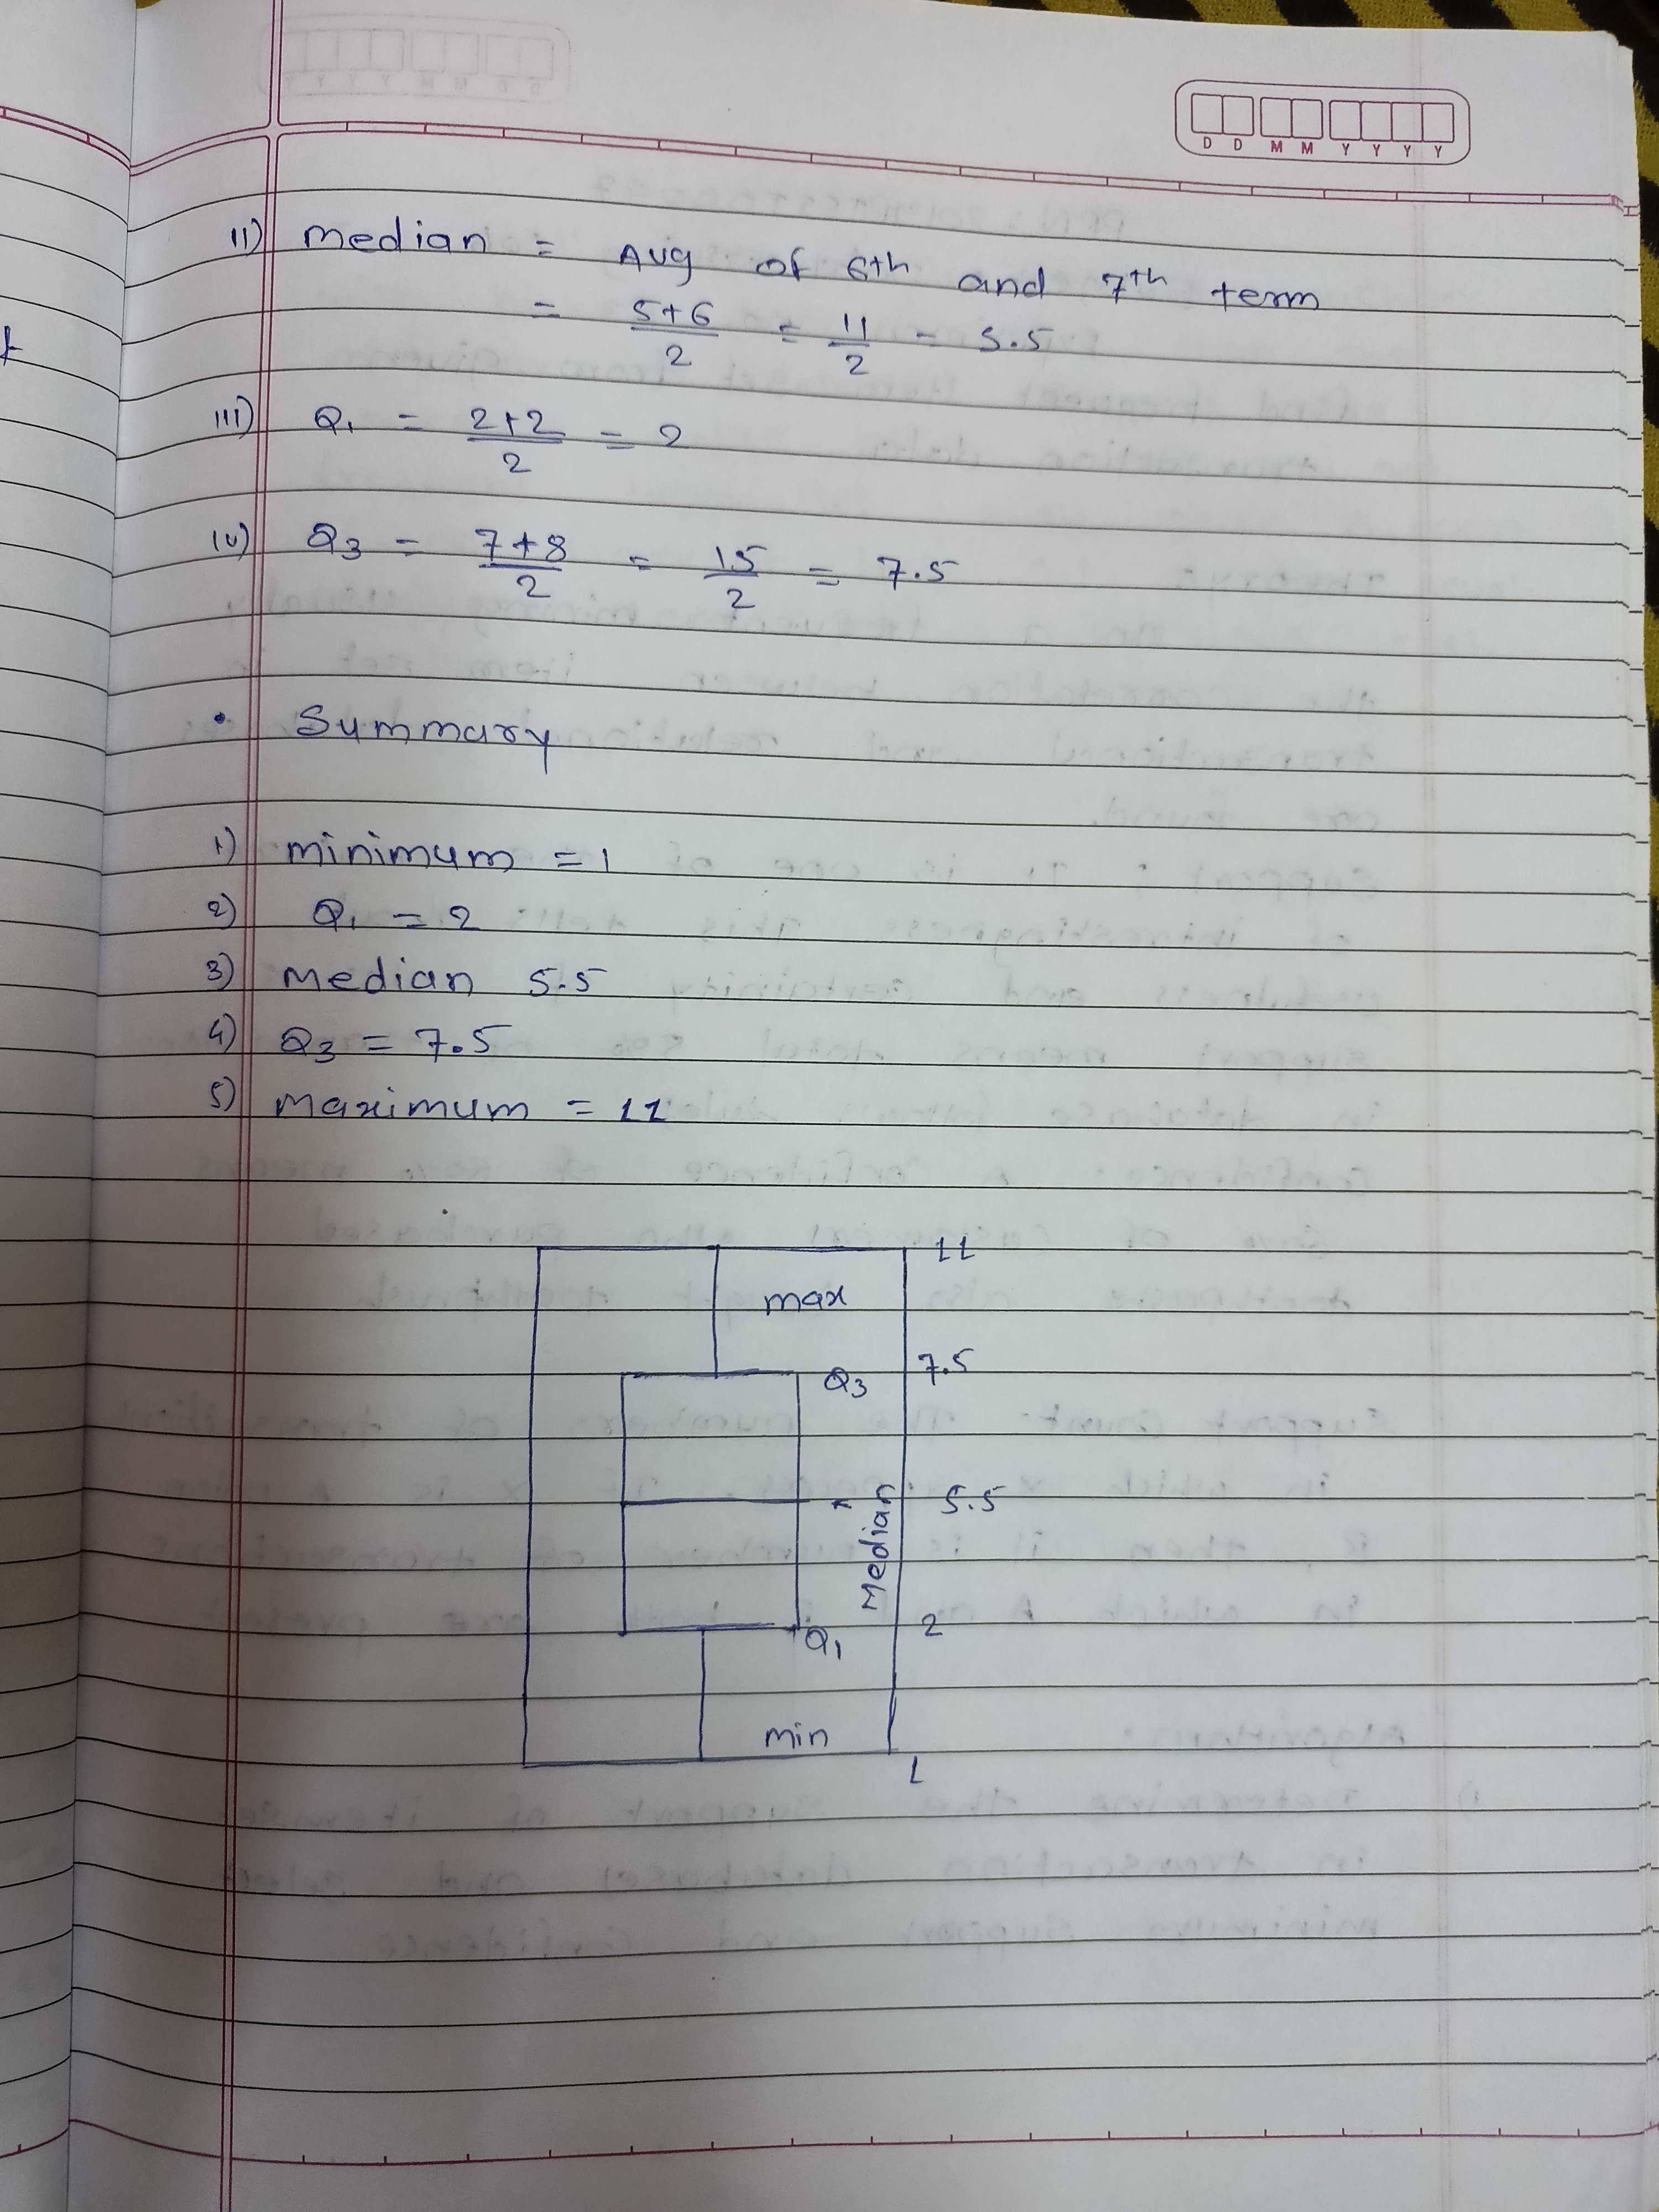 D D M M Y Y Y Y
11) Median = Avg of 6th and 7th term
= 5+6/2 = 11/2 = 5.5
111) Q1 = 2+2/2 = 2
1v) Q3 = 7+8/2 = 15/2 = 7.5
• Summary
1) minimum = 1
2) Q1 = 2
3) Median 5.5
4) Q3 = 7.5
5) maximum = 11
11
max
Q3 7.5
Median 5.5
Q1 2
min
1